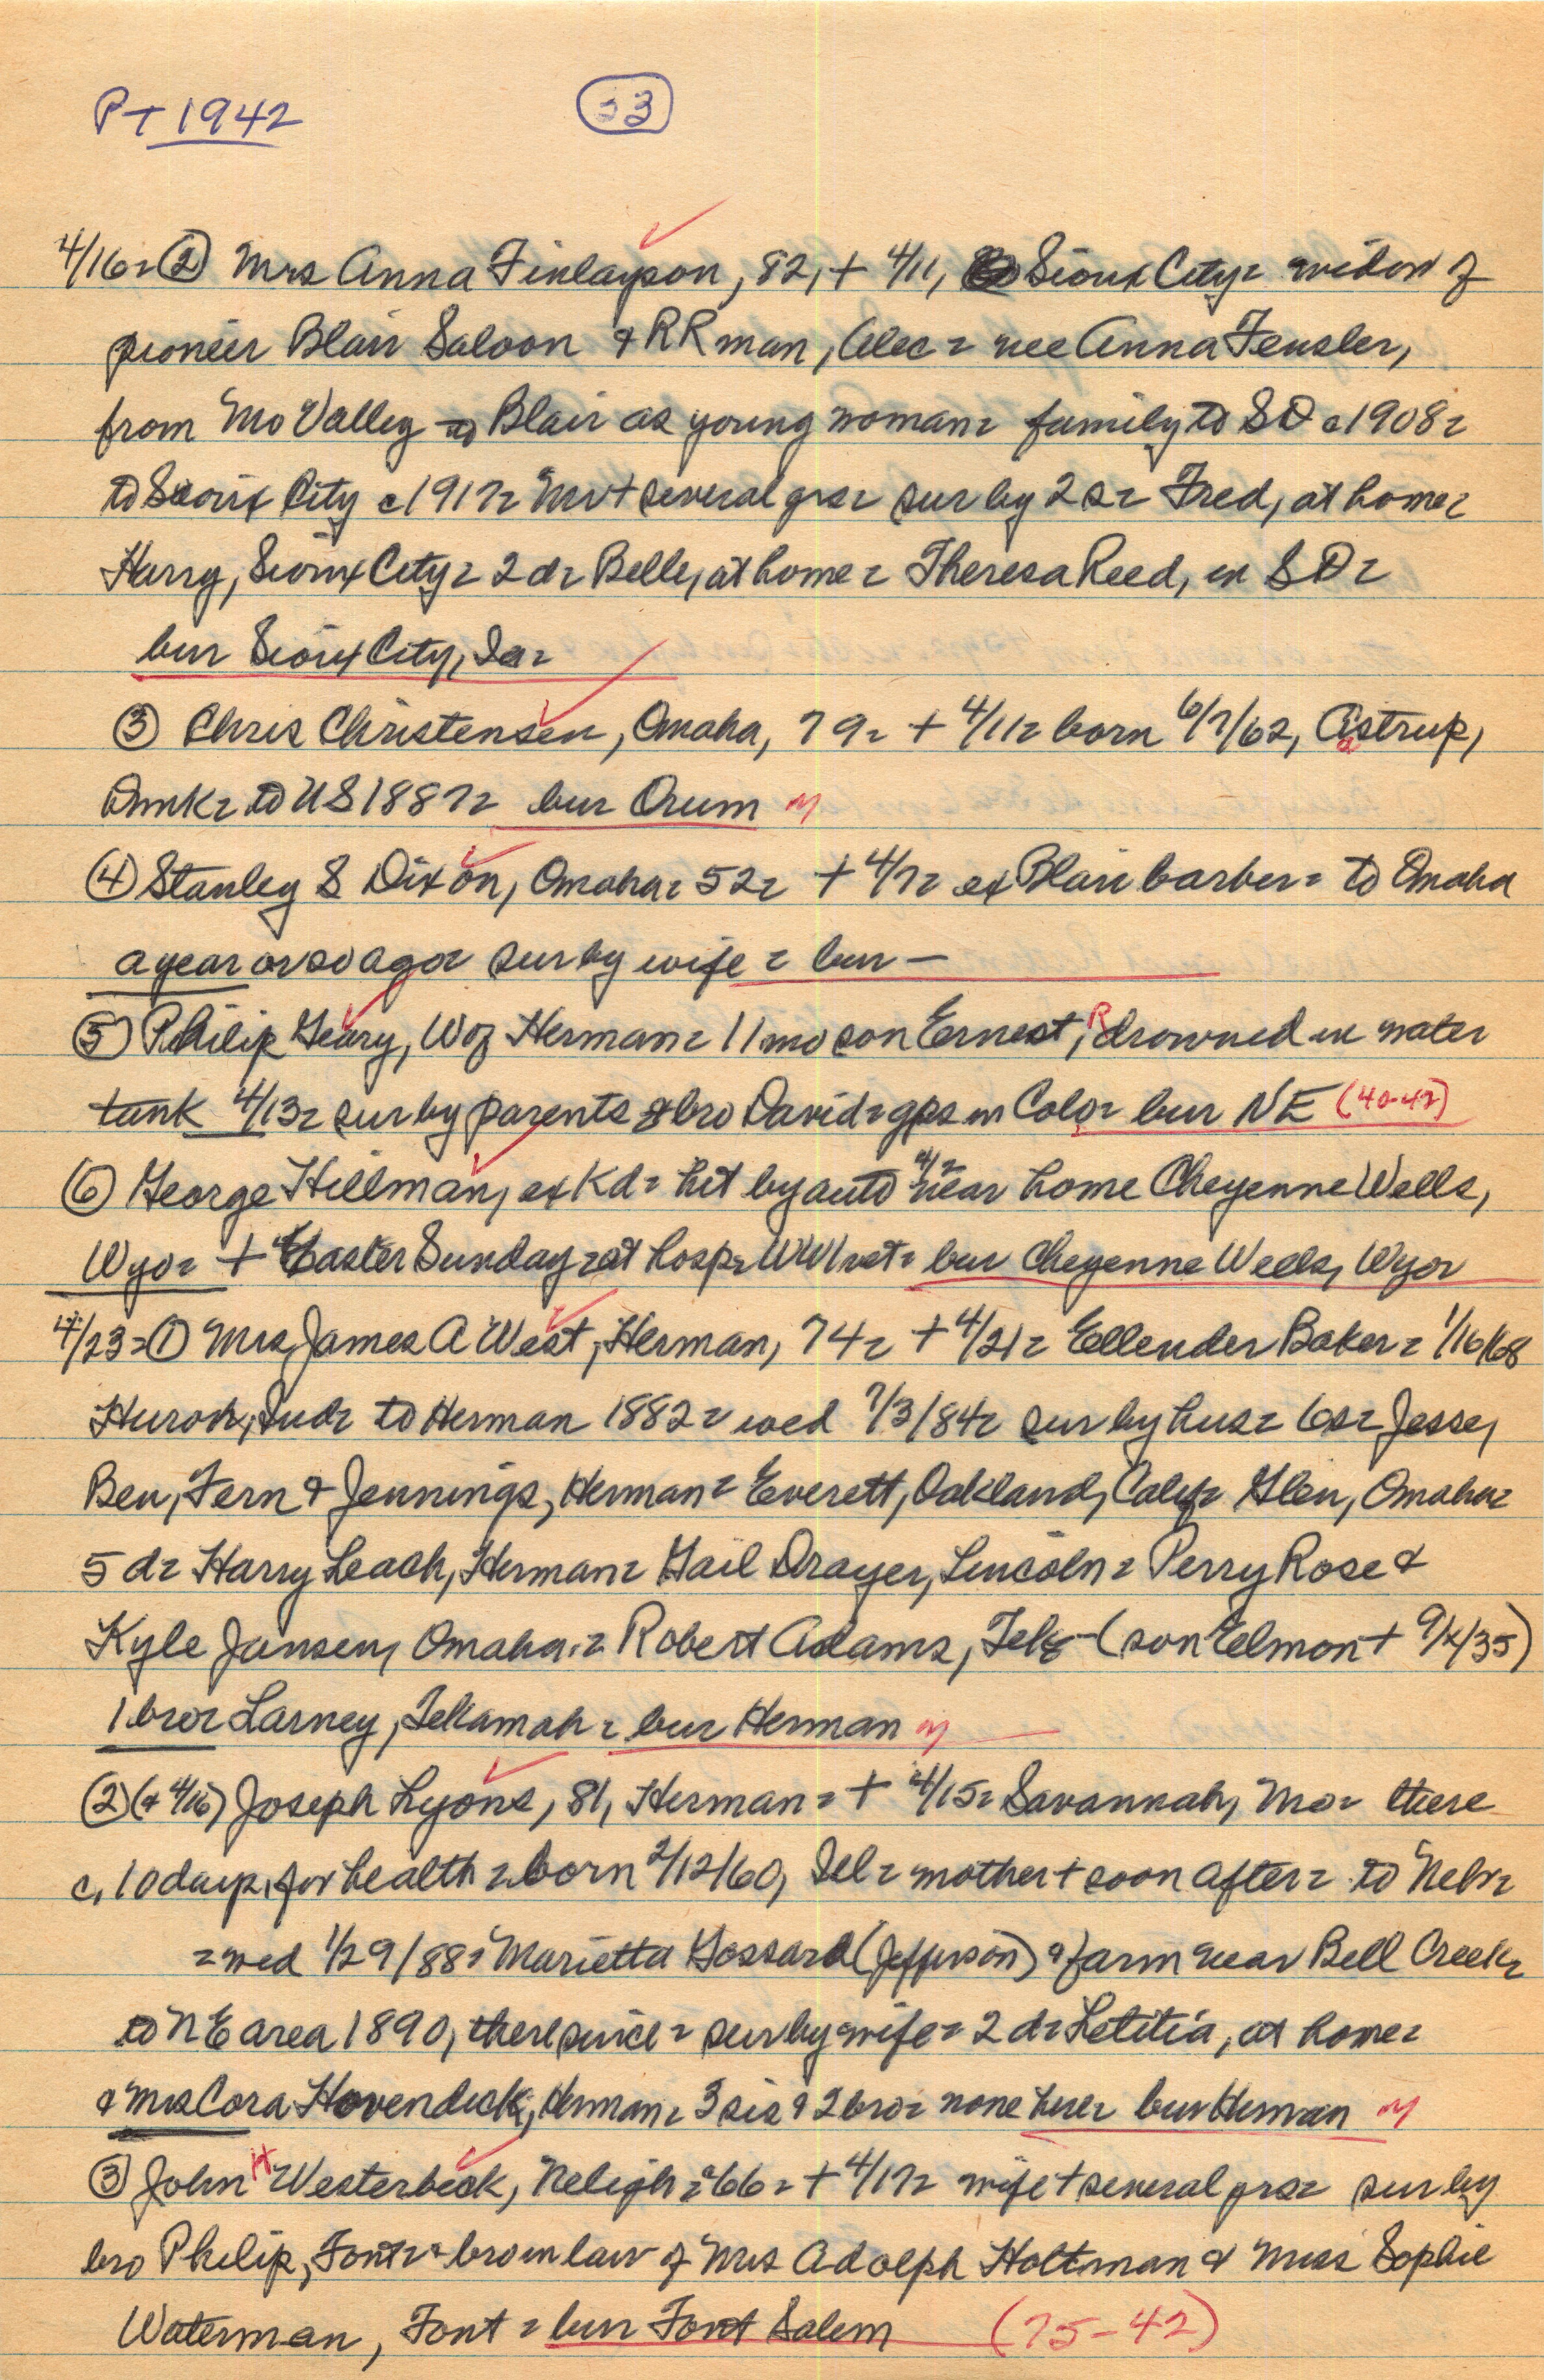 PT 1942 33
4/16= ② Mrs Anna Finlayson, 82, + 4/11, Sioux City= widow of
pioneer Blair Saloon & RR man, Alec= nee Anna Fensler,
from Mo Valley to Blair as young woman= family to SD c1908=
to Sioux City c1917= Mr + several yrs= sur by 2 s= Fred, at home=
Harry, Sioux City= 2 d= Belle, at home= Theresa Reed, in SD=
bur Sioux City, Ia=
③ Chris Christensen, Omaha, 79= + 4/11= born 6/7/62, Astrup,
Dmk= to US 1887= bur Orum m
④ Stanley S Dixon, Omaha= 52= + 4/7= ex Blair barber= to Omaha
a year or so ago= sur by wife= bur —
⑤ Philip Geary, W of Herman= 11 mo son Ernest, R, drowned in water
tank 4/13= sur by parents & bro David= gps in Colo= bur NE (40-42)
⑥ George Hillman, ex Kd= hit by auto 4/2 near home Cheyenne Wells,
Wyo= + Easter Sunday= at hosp= WWI vet= bur Cheyenne Wells, Wyo=
4/23= ① Mrs James A West, Herman, 74= + 4/21= Ellender Baker= 1/16/68
Huron, Ind= to Herman 1882= wed 7/3/84= sur by hus= 6s= Jesse,
Ben, Fern & Jennings, Herman= Everett, Oakland, Calif= Glen, Omaha=
5 d= Harry Leach, Herman= Gail Drayer, Lincoln= Perry Rose &
Kyle Jansen, Omaha= Robert Adams, Tek= (son Elmon + 9/4/35)
1 bro= Larney, Tekamah= bur Herman m
② (& 4/16) Joseph Lyons, 81, Herman= + 4/15= Savannah, Mo= there
c. 10 days, for health= born 2/12/60, Ill= mother + soon after= to Nebr=
= wed 1/29/88= Marietta Gossard (Jefferson) & farm near Bell Creek=
to NE area 1890, there since= sur by wife= 2 d= Letitia, at home=
& Mrs Cora Hovendick, Herman= 3 sis & 2 bro= none here= bur Herman m
③ John H Westerbeck, Neligh= 66= + 4/17= wife + several yrs= sur by
bro Philip, Font= & bro in law of Mrs Adolph Holtman & Miss Sophie
Waterman, Font= bur Font Salem (75-42)